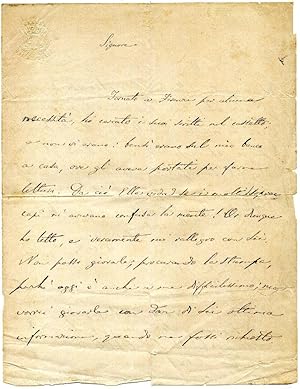 Signore
Tornato a Firenze per alcune
necessità, ho cercato i suoi scritti nel cassetto,
e non vi erano: bensì erano sul mio banco
a casa, ove gli aveva portati per farne
lettura. Da ciò
capi mi avevano confusa la mente! Or dunque
ho letto, e veramente me rallegro con Lei.
Non posso giovarle; procurando la stampa,
perchè oggi è anche a me difficilissimo; ma
vorrei giovarla con dar di Lei ottima
informazione, quando ne fossi richiesto